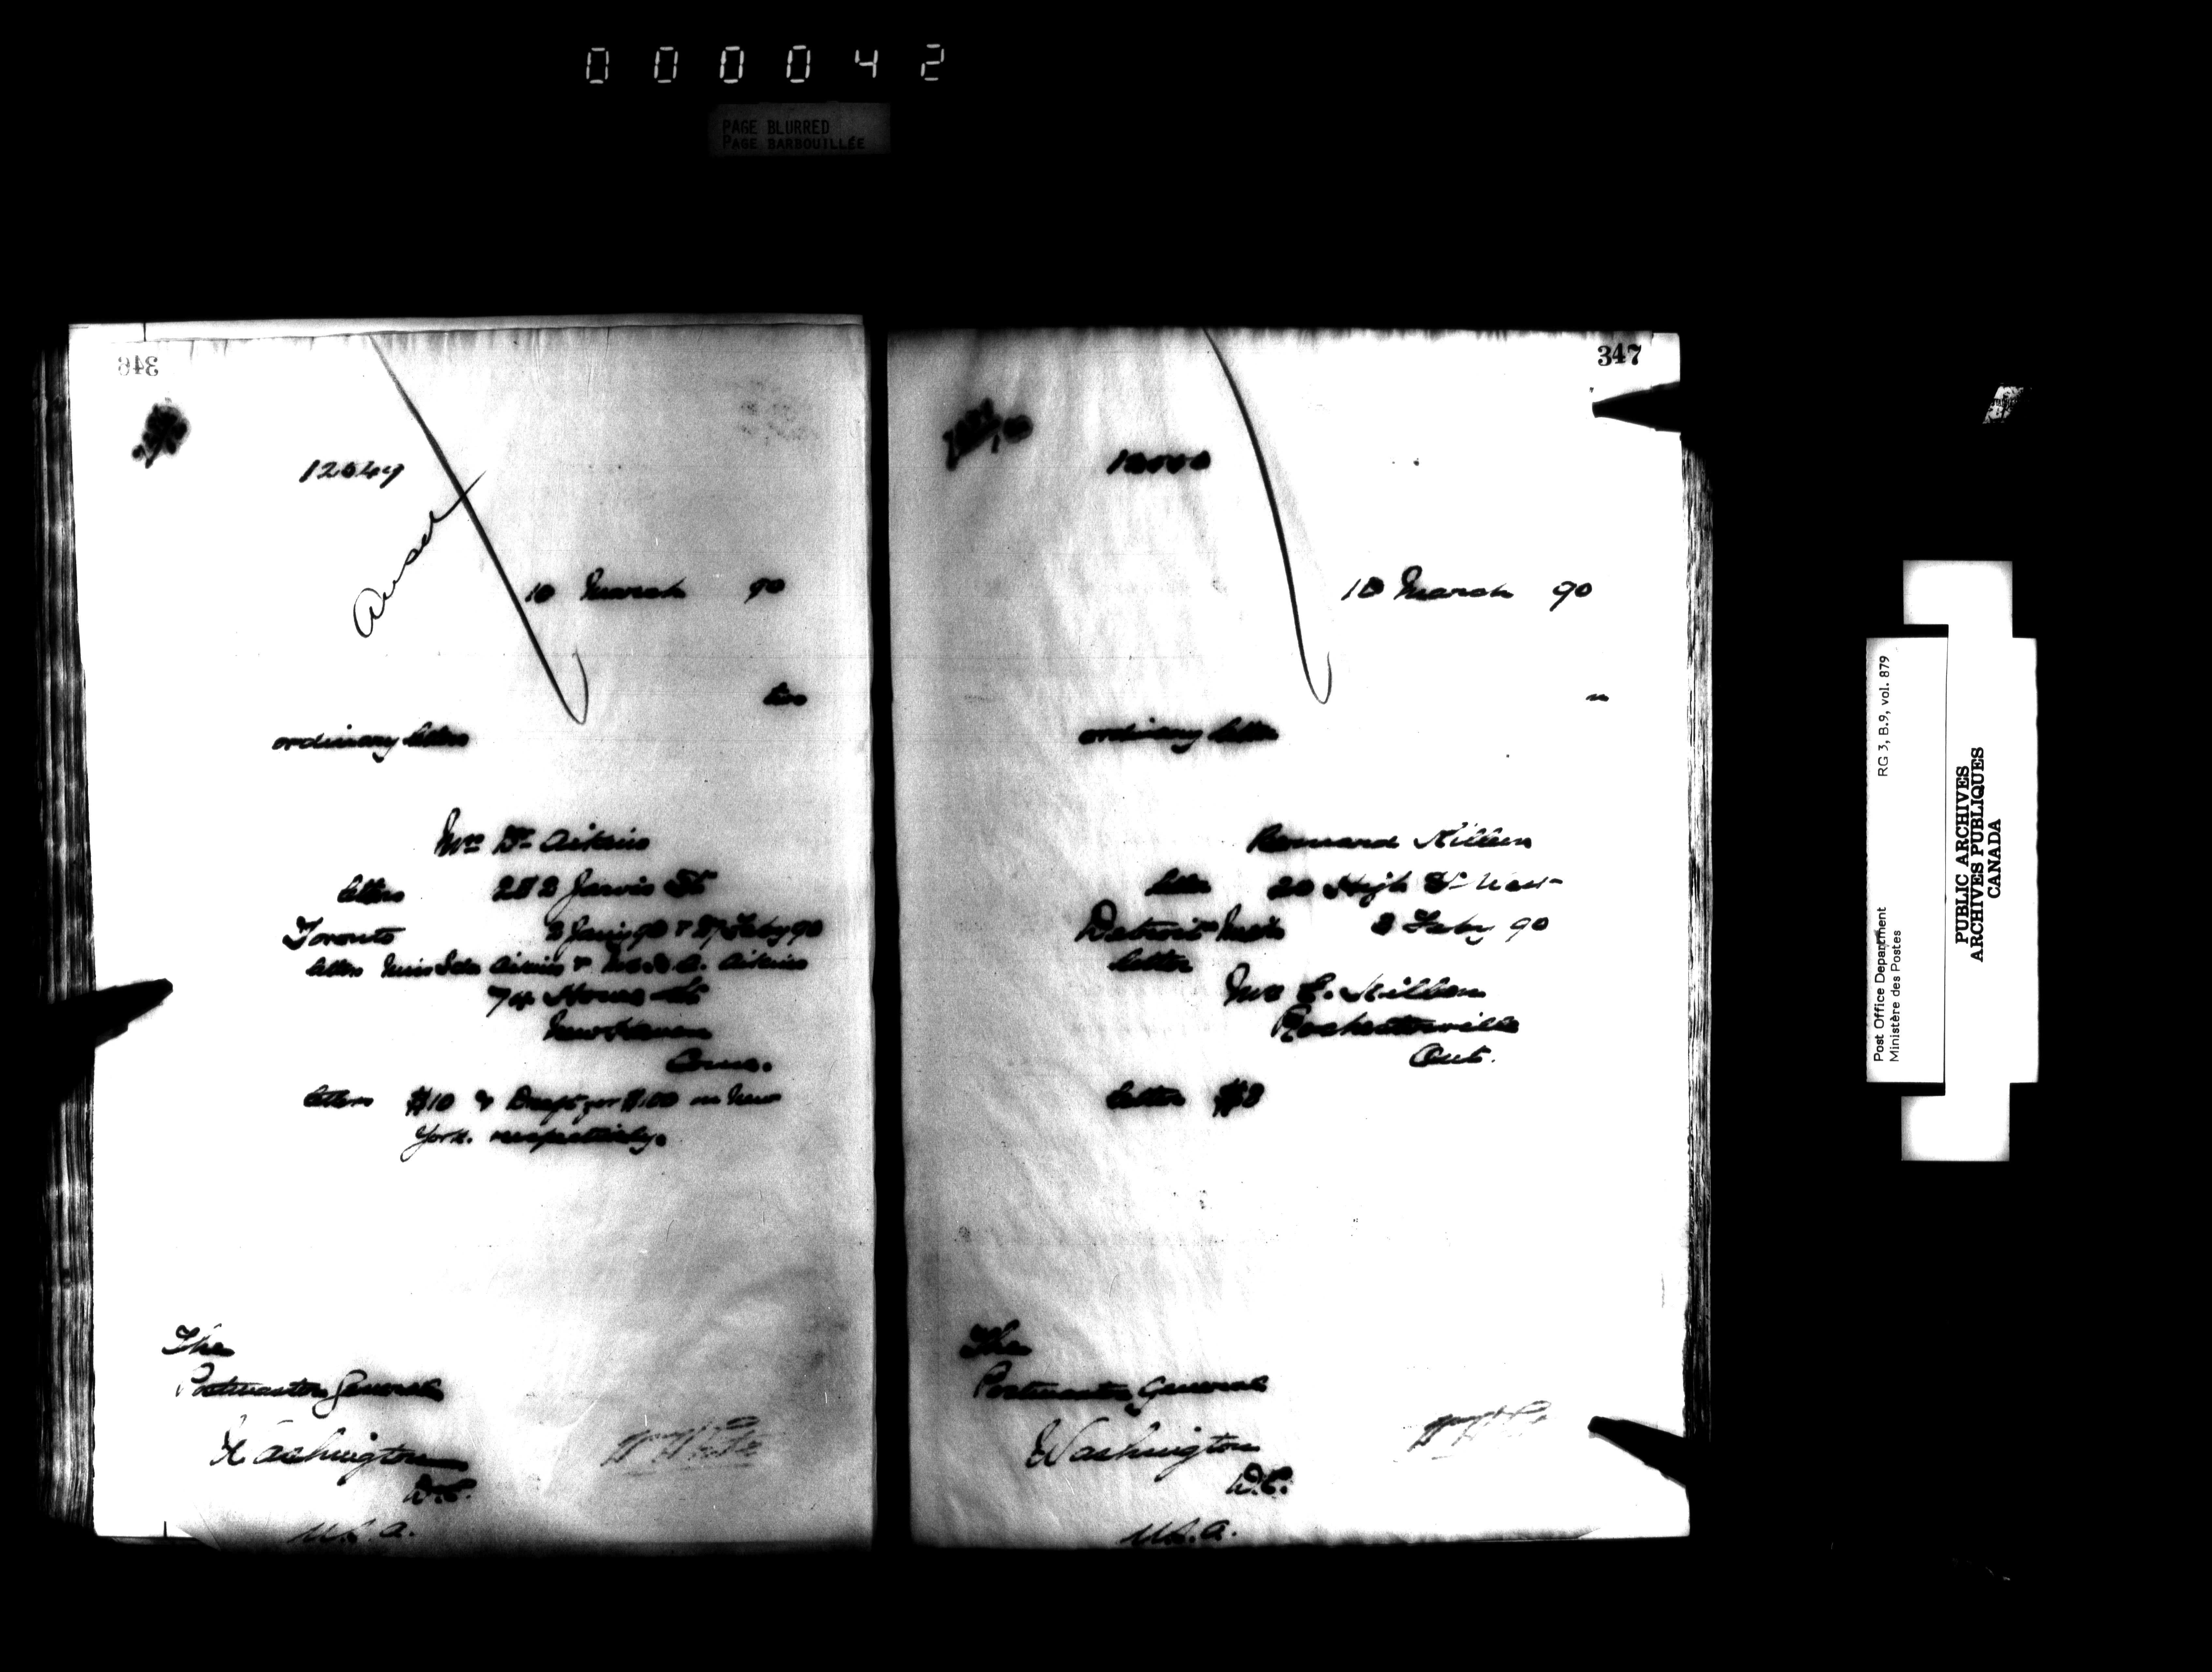 000042
PAGE BLURRED
PAGE BARBOUILLÉE
346
10 March 90
two
ordinary letters
Mrs Dr Aikins
letters 282 Jarvis St
Toronto 2 Jany 90 & 27 Feby 90
letters Miss Ida Aikins & Aikins
74 Howe St
New Haven
Conn.
letters $10 & Draft for $100 on New
York. respectively.
The
Postmaster General
Washington
D.C.
U.S.A.
347
10 March 90
ordinary letter
Killen
letter 20 High St West
Detroit Mich 3 Feby 90
letter
Mrs C. Killen
Rochesterville
Ont.
letter $3
The
Postmaster General
Washington
D.C.
U.S.A.
Post Office Department
Ministère des Postes
RG 3, B.9, vol. 879
PUBLIC ARCHIVES
ARCHIVES PUBLIQUES
CANADA